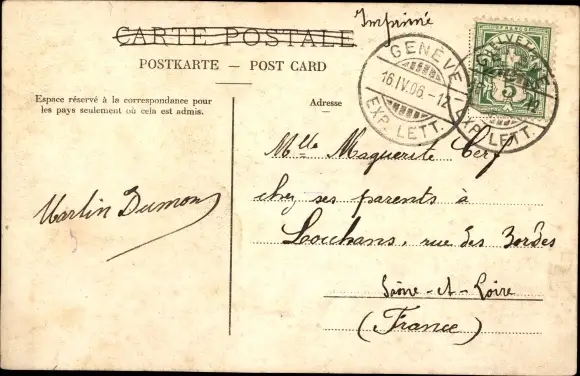 Imprimé
CARTE POSTALE
POSTKARTE — POST CARD
Espace réservé à la correspondance pour
les pays seulement où cela est admis.
Adresse
GENÈVE
16.IV.06.-12
EXP. LETT.
GENÈVE
EXP. LETT.
5
Mlle Maguerite Cerf
chez ses parents à
Louhans, rue des Bordes
Saône-et-Loire
(France)
Martin Dumon